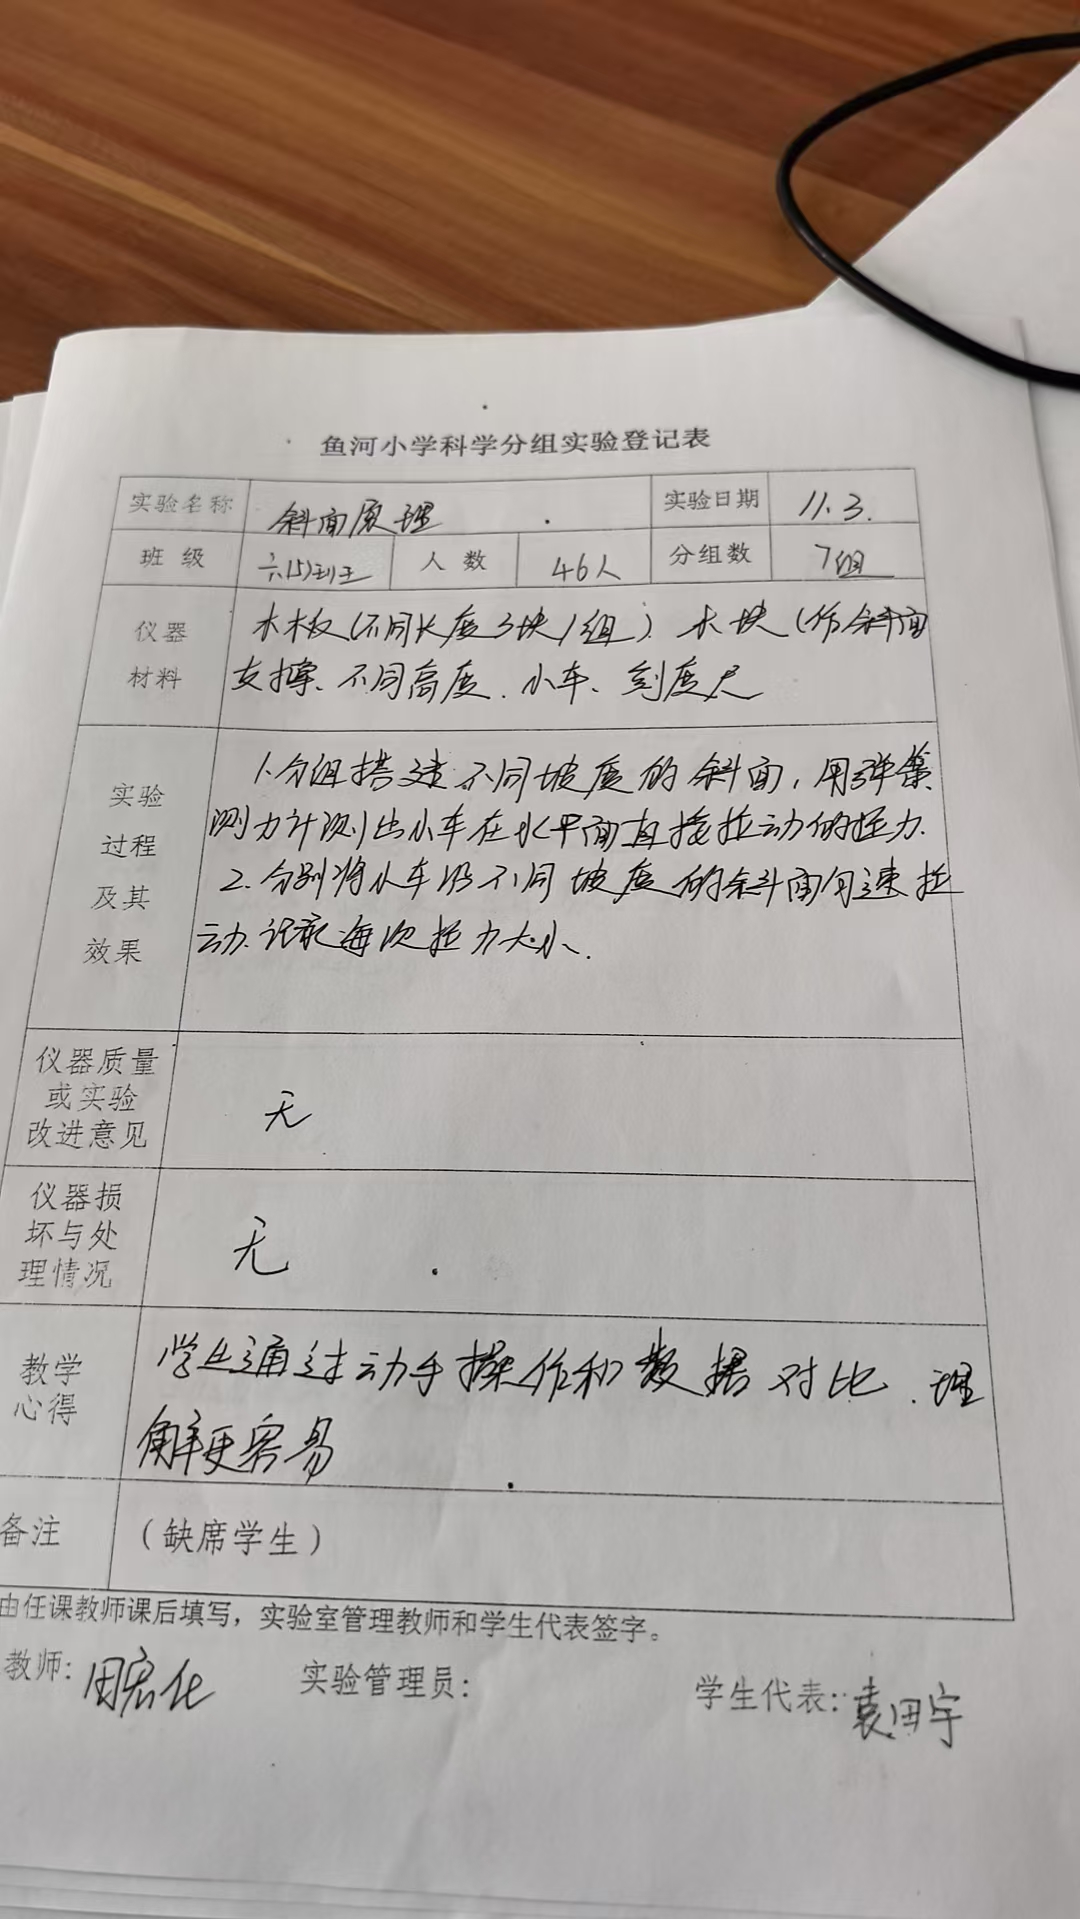 鱼河小学科学分组实验登记表
实验名称 斜面原理 实验日期 11.3.
班级 六(5)班 人数 46人 分组数 7组
仪器 木板(不同长度3块1组)、木块(作斜面
材料 支撑、不同高度、小车、刻度尺
实验 1.分组搭建不同坡度的斜面,用弹簧
过程 测力计测出小车在水平面直接拉动的拉力.
及其 2.分别将小车沿不同坡度的斜面匀速拉
效果 动.记录每次拉力大小.
仪器质量
或实验 无
改进意见
仪器损
坏与处 无
理情况
教学 学生通过动手操作和数据对比.理
心得 解更容易
备注 (缺席学生)
由任课教师课后填写,实验室管理教师和学生代表签字。
教师: 实验管理员: 学生代表: 袁田宇